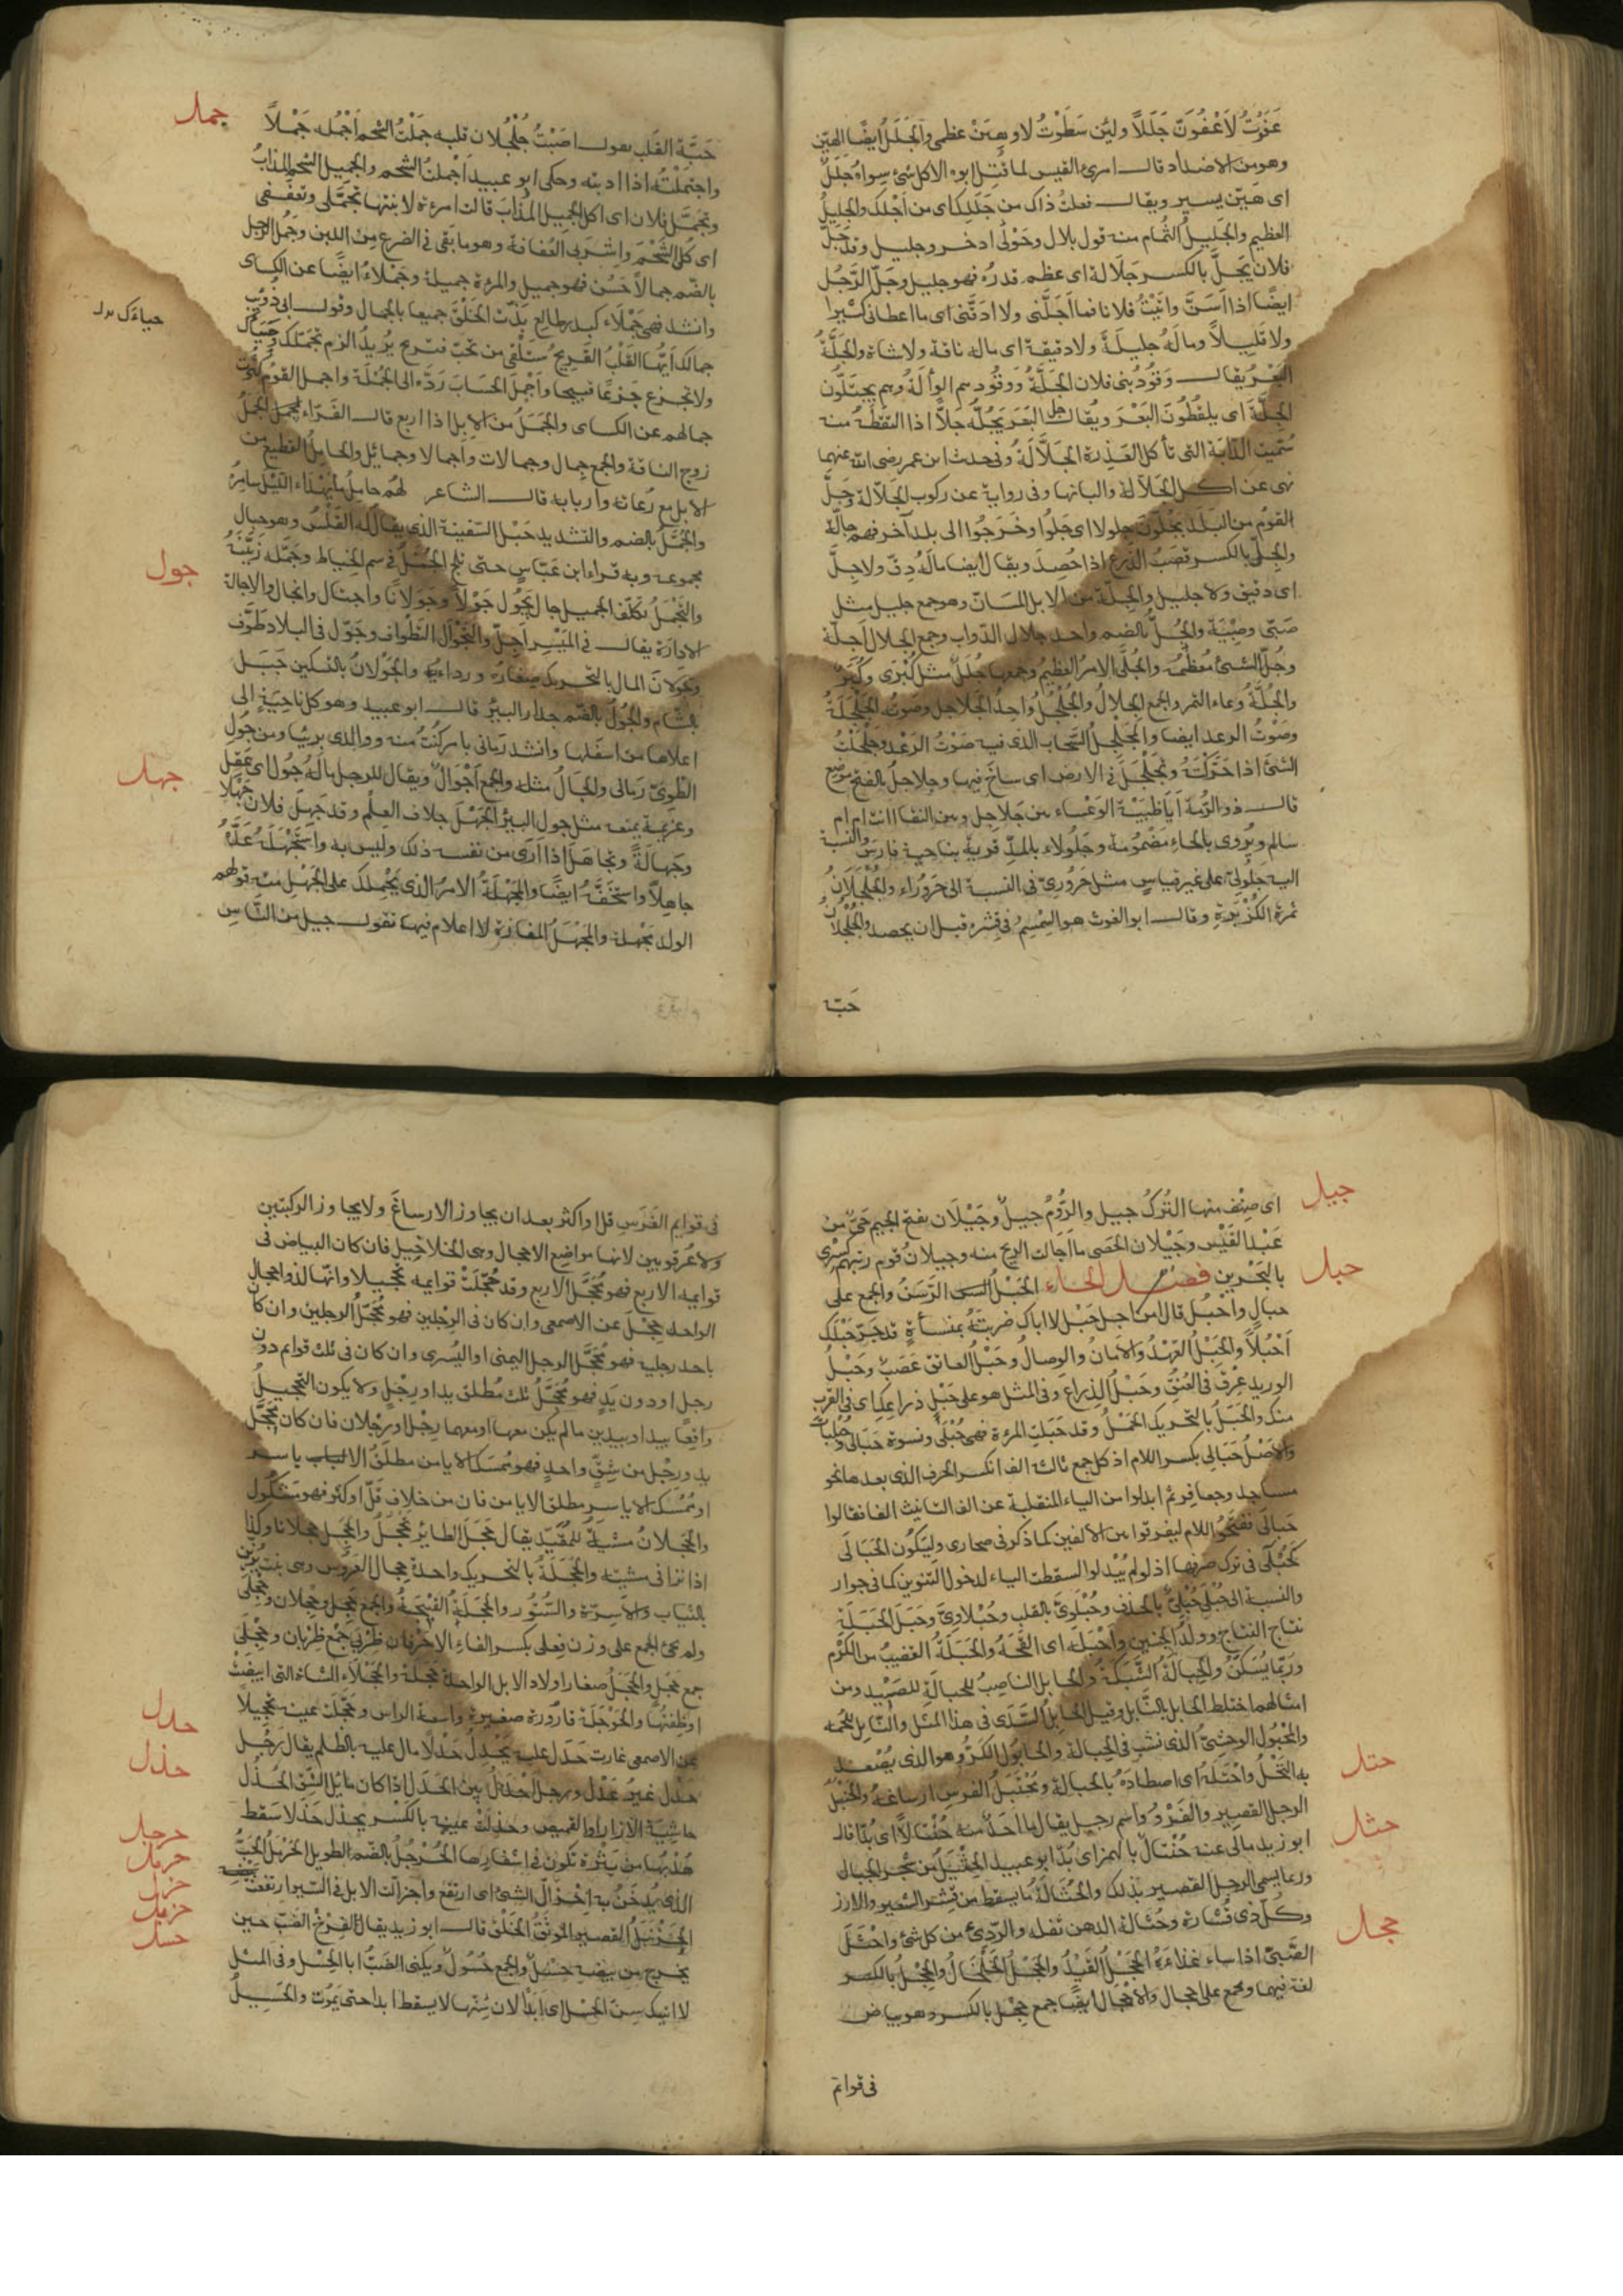 عَفَوْتُ لَاَعْفُوَنّ جَلَلًا ولئن سَطَوْتُ لاوهِنَنْ عظمى والجَلَلُ ايضًا الهيّن
وهو من الاضداد قال امرئ القيس لما قُتِل ابوه الا كل شئ سواهُ جَلَلٌ
اى هَيّن يسير ويقال فعلتُ ذاك من جَلَلِك اى من اجْلك والجليلُ
العظيم والجَلِيلُ الثُّمام منه قول بلال وحَوْلى اذخر وجليل وقد جَلَّ
فلان يَجِلّ بالكسر جَلَالة اى عظم قدرُه فهو جليل وجَلّ الرَّجُل
ايضًا اذا اَسَنَّ واتَيْتُ فلانا فما اَجَلَّنى ولا ادَقَّنى اى ما اعطانى كثيرا
ولا قَلِيلاً وماله جليلةٌ ولا دقيقة اى ماله ناقة ولا شاة والجَلَّةُ
البَعْرُ يقال وَقُودُ بنى فلان الجَلَّةُ ووقُودهم الوألَةُ وهم يجتلّون
الجلَّةَ اى يلقُطُون البَعْر ويُقال جلّ البَعَرَ يَجُلّه جَلاًّ اذا التقطه منه
سُمّيت الدّابة التى تأكل العَذِرة الجَلَّالَةُ وفى حديث ابن عمر رضى الله عنهما
نهى عن اكل الجَلّالة والبانها وفى رواية عن ركوب الجَلّالة وجَلَّ
القومُ من البَلَد يَجُلّون جلولا اى جَلَوْا وخَرَجُوا الى بلد آخر فهم جالّة
والجِلّ بالكسر قصَبُ الزرع اذا حُصِدَ ويقال ايضا مالَهُ دِقّ ولا جِلّ
اى دقيق ولا جليل والجِلّة من الابل المسَانّ وهو جمع جليل مثل
صَبّى وصِبْيَة والجُلّ بالضم واحد جلال الدّواب وجمع الجلال اَجلّة
وجُلّ الشئ مُعظَمُه والجُلَّى الامرُ العظيمُ وجمعها جُلَلٌ مثل كُبْرَى وكُبَرٌ
والجُلَّةُ وعاء التمر والجمع الجِلالُ والجُلْجُلُ واحِدُ الجَلاجل وصوتُه الجَلْجَلَةُ
وصَوْتُ الرعد ايضا والمُجَلجِلُ السَّحاب الذى فيه صَوْتُ الرَعْد وجَلْجَلْتُ
الشئَ اذا حَرَّكْتَهُ وتَجَلْجَلَ فى الارض اى ساخَ فيها وجلاجلُ بالفتح موضع
قال ذو الرُّمة اَيَا ظَبْيَةَ الوَعْساء بين جَلاجِل وبين النقا اانت ام ام
سالم ويُروى بالحاء مَضمُومة وجَلُولاء بالمدّ قريةٌ بناحية فارسَ والنسبة
اليه جَلولىّ على غير قياس مثل حَرُورىّ فى النسبة الى حَرَوْراء والجُلجُلَانُ
ثمرة الكُزْبَرَة وقال ابو الغوث هو السِّمْسِمُ فى قِشْره قبل ان يحصد والجُلجُلان
حَبّة
جمل
حَبّة القلب يقول اصَبْتُ جُلْجُلان قلبه جَمَلْتُ الشحم اَجْمُله جَمْلاً
واجتَمَلْتُه اذا اذبته وحكى ابو عبيد اَجْملتُ الشحم والجميل الشحم المذابُ
وتجَمَّل فلان اى اكل الجميل المُذَابَ قالت امرءة لابنتها تجمّلى وتعفّفى
اى كُلى الشَّحْمَ واشرَبى العُفَافَة وهو ما بَقى فى الضرع من اللبن وجَمُل الرجل
بالضّم جمالاً حَسُن فهو جميل والمرءة جميلة وجَمْلاءُ ايضًا عن الكساى
وانشد فهى جَمْلاءُ كبدر طالع بَذّت الخَلْقَ جميعا بالجمال وقول ابى ذُوَيْب
جمالك اَيّها القلْبُ القَرِيحُ ستلْقى من تحبّ فتستريح يُريدُ الزم تجمّلك وحَيَاك
ولا تجزع جَزَعًا قبيحا واَجْمَلَ الحسَابَ رَدّه الى الجُمْلَة واجمل القومُ كثُرت
جمالهم عن الكساى والجَمَلُ من الابل اذا اربع قال الفَرّاء الجَمَل
زوج الناقة والجمع جمال وجمالات واجمالا وجمائل والجامل القطيع من
الابل مع رُعاته واربابه قال الشاعر لهم جاملٌ ما يَهْدَاء الليلَ سامِرُ
والجُمَّلُ بالضم والتشديد حَبْل السّفينة الذى يقال له القَلْسُ وهو حبال
مجموعه وبه قراء ابن عَبّاس حتى يلج الجُمَّلُ فى سم الخياط وجَمّله زَيَّنَهُ
جول
والتجَمُّلُ تكلّف الجميل جال يَجُول جَوْلًا وجَوَلانًا واجتال وانجال والاجالة
الادارَة يقال فى المَيْسِر اَجِلْ والتَّجْوَال التَطْواف وجَوّل فى البلاد طَوّف
وجَولان المال بالتحريك صِغَاره ورداءيه والجَوْلانُ بالتسكين جَبَل
بالشّام والجُولُ بالضّم جدار البِير قال ابو عبيد وهو كل ناحية الى
اعلاها من اسفلها وانشد رَمانى بامر كنْتُ منه ووالدى بريئًا ومن جُول
الطّوِىّ رَمانى والجالُ مثله والجمع اَجْوَالٌ ويقال للرجل ماله جُولٌ اى عَقْل
جهل
وعزيمة يمنعه مثل جول البئر الجَهْلُ خلاف العِلْم وقد جَهِلَ فلان جَهْلًا
وجَهَالَةً وتجاهَلَ اذا اَرَى من نفسه ذلك وليس به واستَجْهَلَهُ عَدَّهُ
جاهلاً واستَخَفَّهُ ايضًا والمَجْهَلَةُ الامرُ الذى يَحْمِلُك على الجَهْل منه قولهم
الولد مَجْهَلة والمَجْهَلُ المفازة لا اعلام فيها تقول جيل من النّاس
جيل
اى صِنْف منها التُّرْكُ جيل والرُّومُ جيلٌ وجَيْلان بفتح الجيم حَىّ من
عَبْد القَيْس وجَيْلان الحَصى ما اَجَالت الريح منه وجيلانُ قوم رتبهم كِسْرى
حبل
بالبَحْرين فصل الحاء الحَبْلُ الرَّسَنُ والجمع على
حبال واحْبُلٌ قال امن اجل حَبْل لا اباك ضربتَهُ بمنسأة قد جَرّ حَبْلَك
اَحْبُلًا والحَبْلُ العَهْدُ والامَانُ والوصالُ وحَبْلُ العاتق عَصَبٌ وحَبْلُ
الوريد عِرْقٌ فى العُنُق وحَبْلُ الذِراع وفى المثل هو على حَبْل ذراعك اى فى القرب
منك والحَبَلُ بالتحريك الحَمْلُ وقد حَبَلت المرءة فهى حُبْلَى ونسوة حَبَالى وحُبْلَيات
والاَصْلُ حَبَالِى بكسر اللام اذ كل جمع ثالثه الف انكسر الحرف الذى بعدها نحو
مساجد وجعافِر ثم ابدلوا من الياء المنقلبة عن الف التانيث الفا فقالوا
حَبالَى بفتحوا اللام ليفرقوا بين الالفين كما ذكر فى صحارى وليَكون الحَبَالَى
كحُبْلَى فى ترك صرفها اذ لو لم يُبْدلوا لسقطت الياء لدخول التنوين كما فى جوار
والنسبة الى حُبْلَى حُبْلِىّ بالحذف وحُبْلَوِىّ بالقلب وحُبْلاوِىّ وحَبَلَ الحَبَلَة
نتاج النتاج وولد الجنين واَحْبَلَه اى القحَهُ والحَبَلَةُ القضيبُ من الكَرْم
ورَبّما يُسَكَّنُ والحِبالَةُ الشَّبَكَةُ والحابل الناصِبُ للحبالَة للصَيْد ومن
امثالهم اختلط الحابل بالنّابل وقيل الحابل السَّدَى فى هذا المثل والنّابل اللُحمة
والمَحْبُولُ الوحشىّ الذى نشب فى الحِبالة والحابُول الكَرُّ وهو الذى يُصْعَد
حتل
به النخلُ واحْتَبَلَهُ اى اصطادَهُ بالحبالة ومُحْتَبَلُ الفرس ارساغه والحَنْبَلُ
الرجل القصير والفَرْوُ واسم رجل يقال ما احَدٌ منه حُنْتَالًا اى بُدّا قال
حثل
ابو زيد مالى عنه حُنْتَالٌ بالهمز اى بُدّ ابو عبيد الحِثْيَلُ من شجر الجبال
وربما يسمى الرجل القصير بذلك والحُثَالَةُ ما يسقط من قِشْر الشعير والارز
وكلّ ذى قُشَارة وحُثَالة الدهن ثفله والرّدِىُّ من كل شئ واحْثَلَ
حجل
الصَّبىّ اذا ساء غذاءَهُ الحِجْلُ القَيْدُ والحَجْلُ الخَلْخَالُ والحِجْلُ بالكسر
لغة فيهما وجمع على حجال والاحْجَال ايضًا جمع حِجْل بالكسر وهو بياض
فى قوائم
فى قوايم الفَرَس قلّ او اكثر بعد ان يجاوز الارساغَ ولا يجاوز الركبتين
ولا عُرقوبين لانها مواضع الاحجال وهى الخلاخِيل فان كان البياض فى
قوايمه الاربع فهو مُحَجَّل الاربع وقد حُجّلَتْ قوايمه تحجيلا وانّها لذو احجال
الواحد حِجْل عن الاصمعى وان كان فى الرجلين فهو مُحَجَّلُ الرجلين وان كان
باحد رجليه فهو مُحَجَّل الرجل اليمنى او اليُسرى وان كان فى ثلث قوايم دون
رجل او دون يَدٍ فهو مُحَجَّلُ ثلث مُطلق يد او رِجْلٍ ولا يكون التحجيلُ
واقِعًا بيد او بيدين ما لم يكن معها او معهما رِجْل او رجلان فان كان مُحَجَّل
يد ورِجْل من شِقّ واحد فهو مُمْسَك الايامن مطلَقُ الاياسر
او مُمْسَك الاياسر مطلق الايامن فان من خلاف قلّ او كثر فهو مَشْكُول
والحَجَلانُ مشيَةُ المُقَيّد يقال حَجَلَ الطائرُ يَحْجُلُ ويَحْجِل حجلانا وكذا
اذا نزا فى مشيته والحَجَلَةُ بالتحريك واحدة حجال العَرُوس وهى بيت يُزيّن
بالثياب والاَسِرّة والسُّتُور والحَجَلَةُ القَبْجَةُ والجمع حَجَلٌ وحجلان وحِجْلَى
ولم يجئ الجمع على وزن فِعلى بكسر الفاء الا حرفان ظِرْبَى جَمْع ظَربان وحِجْلَى
جمع حَجَل والحَجَلُ صغار اولاد الابل الواحدة حَجَلَة والحَجْلاء الشاة التى ابيضّتْ
اوظِفتُها والحَوْجَلَة قارُورة صغيرة واسعة الراس وحَجّلَت عينه تحجيلاً
حدل
عن الاصمعى غارت حَدَل عليه يَحْدِلُ حَدْلًا مال عليه بالظلم يقال رَجُل
حذل
حَدْل غيرُ عَدْل ورجل اَحْدَلُ بيّن الحَدَل اذا كان مائل الشّقّ الحُذْلُ
حاشِيَة الازار او القميص وحَذِلَتْ عينه بالكسر يحذل حَذَلا سَقط
حرجل
هُدْبُها من بَثْرة تكون فى اشفارها الحُرْجُلُ بالضّم الطويل الحَرْمَلُ الحَبُّ
حرمل
الذى يُدَخَّنُ به اِحْزَأَلّ الشئ اى ارتفع واحزالّت الابل فى السّير ارتفعت
حزل
حزبل
الحَزَنْبَلُ القصير المُوثَّقُ الخَلْق قال ابو زيد يقال لفَرْخ الضَبّ حين
حسل
يخرج من بيضه حِسْلٌ والجمع حُسُولٌ ويكنى الضَبُّ ابا الحِسْل وفى المثل
لا اتيك سِنّ الحِسْل اى اَبَدًا لان سِنّها لا يسقط ابدا حتى يَمُوت والحَسِيلُ